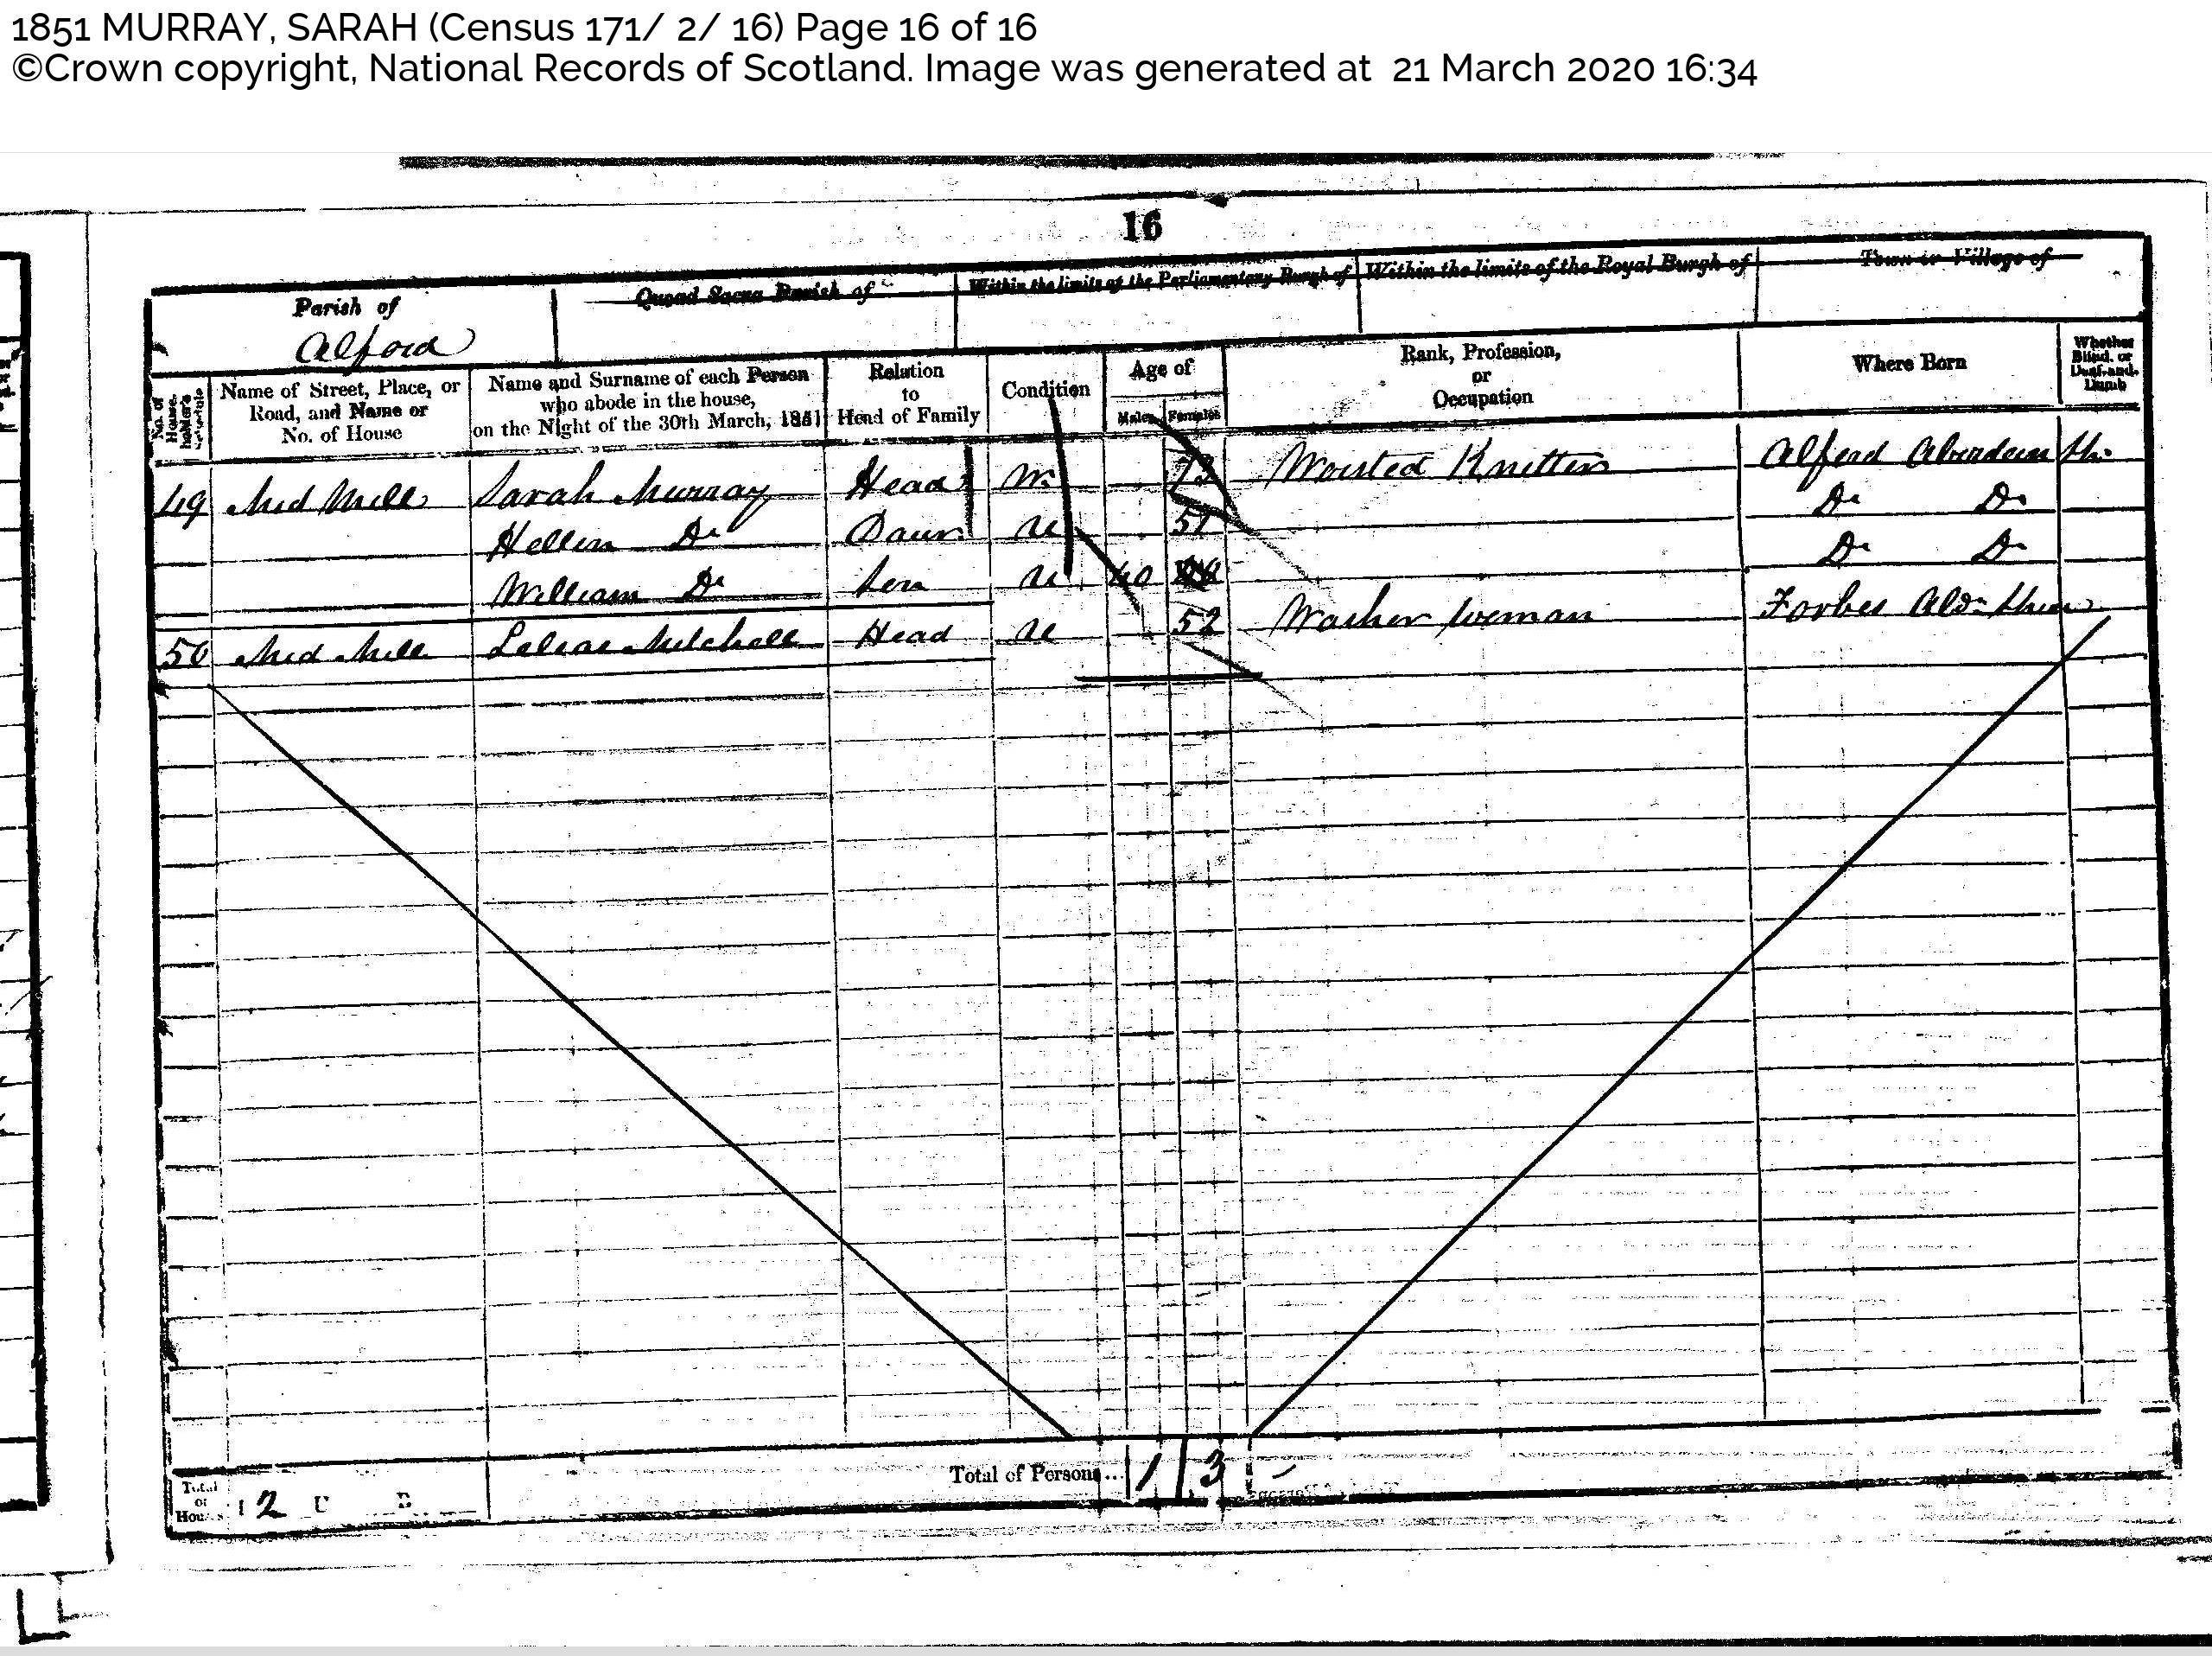 1851 MURRAY, SARAH (Census 171/ 2/ 16) Page 16 of 16
©Crown copyright, National Records of Scotland. Image was generated at 21 March 2020 16:34
16
Parish of Quoad Sacra Parish of Within the limits of the Parliamentary Burgh of Within the limits of the Royal Burgh of Town or Village of
Alford
No. of House-holder's Schedule Name of Street, Place, or Road, and Name or No. of House Name and Surname of each Person who abode in the house, on the Night of the 30th March, 1851 Relation to Head of Family Condition Age of Males Females Rank, Profession, or Occupation Where Born Whether Blind, or Deaf-and-Dumb
49 Mid Mill Sarah Murray Head W. 73 Worsted Knitter Alford Aberdeen sh.
Hellen Do Daur. U 51 Do Do
William Do Son U 40 Do Do
50 Mid Mill Mitchell Head U 52 Washer woman Forbes Abdn Shire
Total of Persons... 1 3
Total of Houses 2 U B